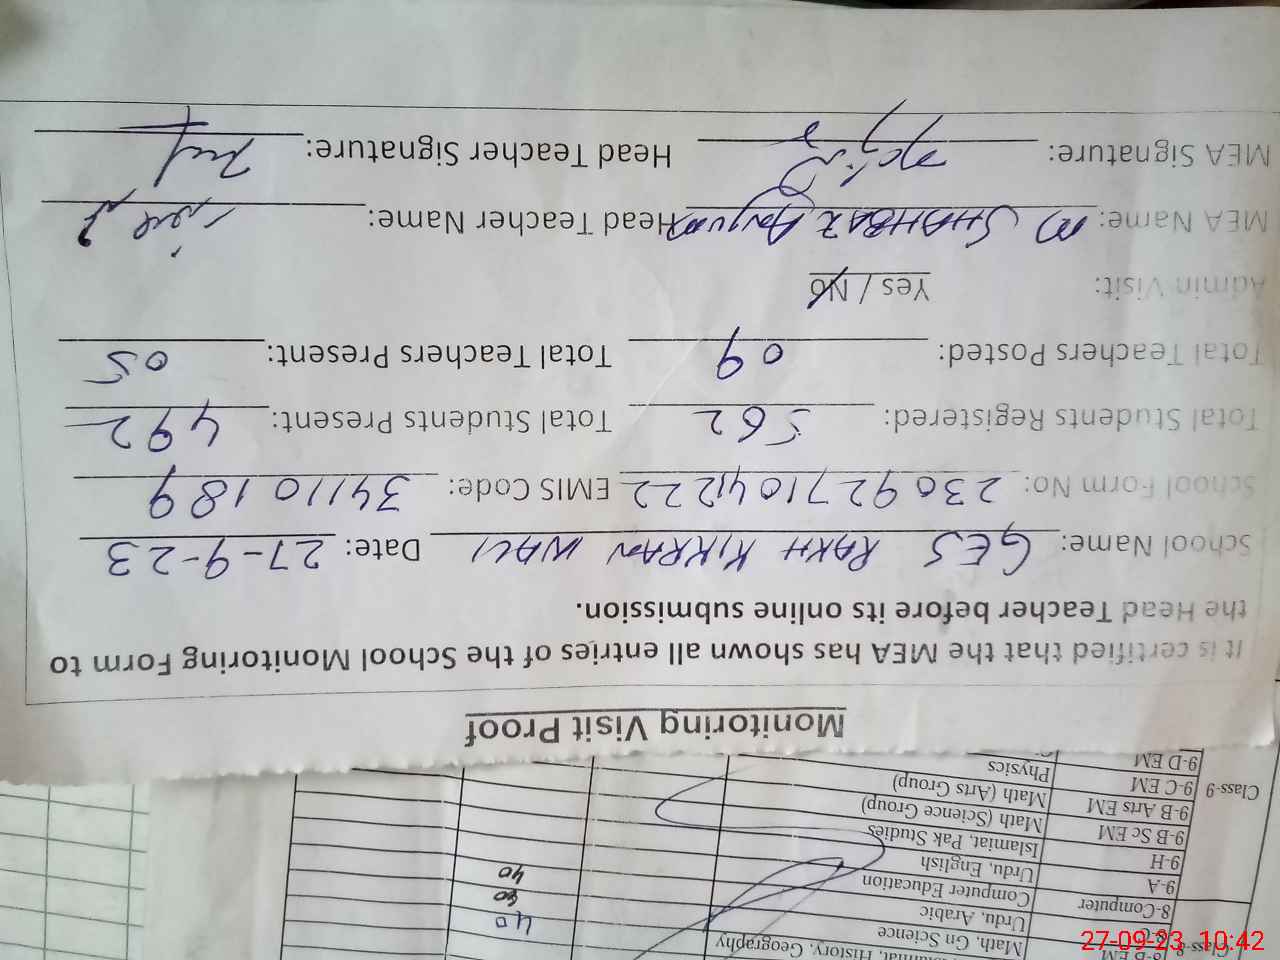 Monitoring Visit Proof
It is certified that the MEA has shown all entries of the School Monitoring Form to
the Head Teacher before its online submission.
School Name: GES RAKH KIKRAN WALI Date: 27-9-23
School Form No: 2309271041222 EMIS Code: 34110189
Total Students Registered: 562 Total Students Present: 492
Total Teachers Posted: 09 Total Teachers Present: 05
Admin Visit: Yes / No
MEA Name: M SHAHBAZ Anjum Head Teacher Name:
MEA Signature: Head Teacher Signature:
Geography
Math, Gn Science 40
Urdu, Arabic 80
8-Computer Computer Education 40
9-A Urdu, English
9-H Islamiat, Pak Studies
9-B Sc EM Math (Science Group)
9-B Arts EM Math (Arts Group)
Class-9 9-C EM Physics
9-D EM
27-09-23 10:42